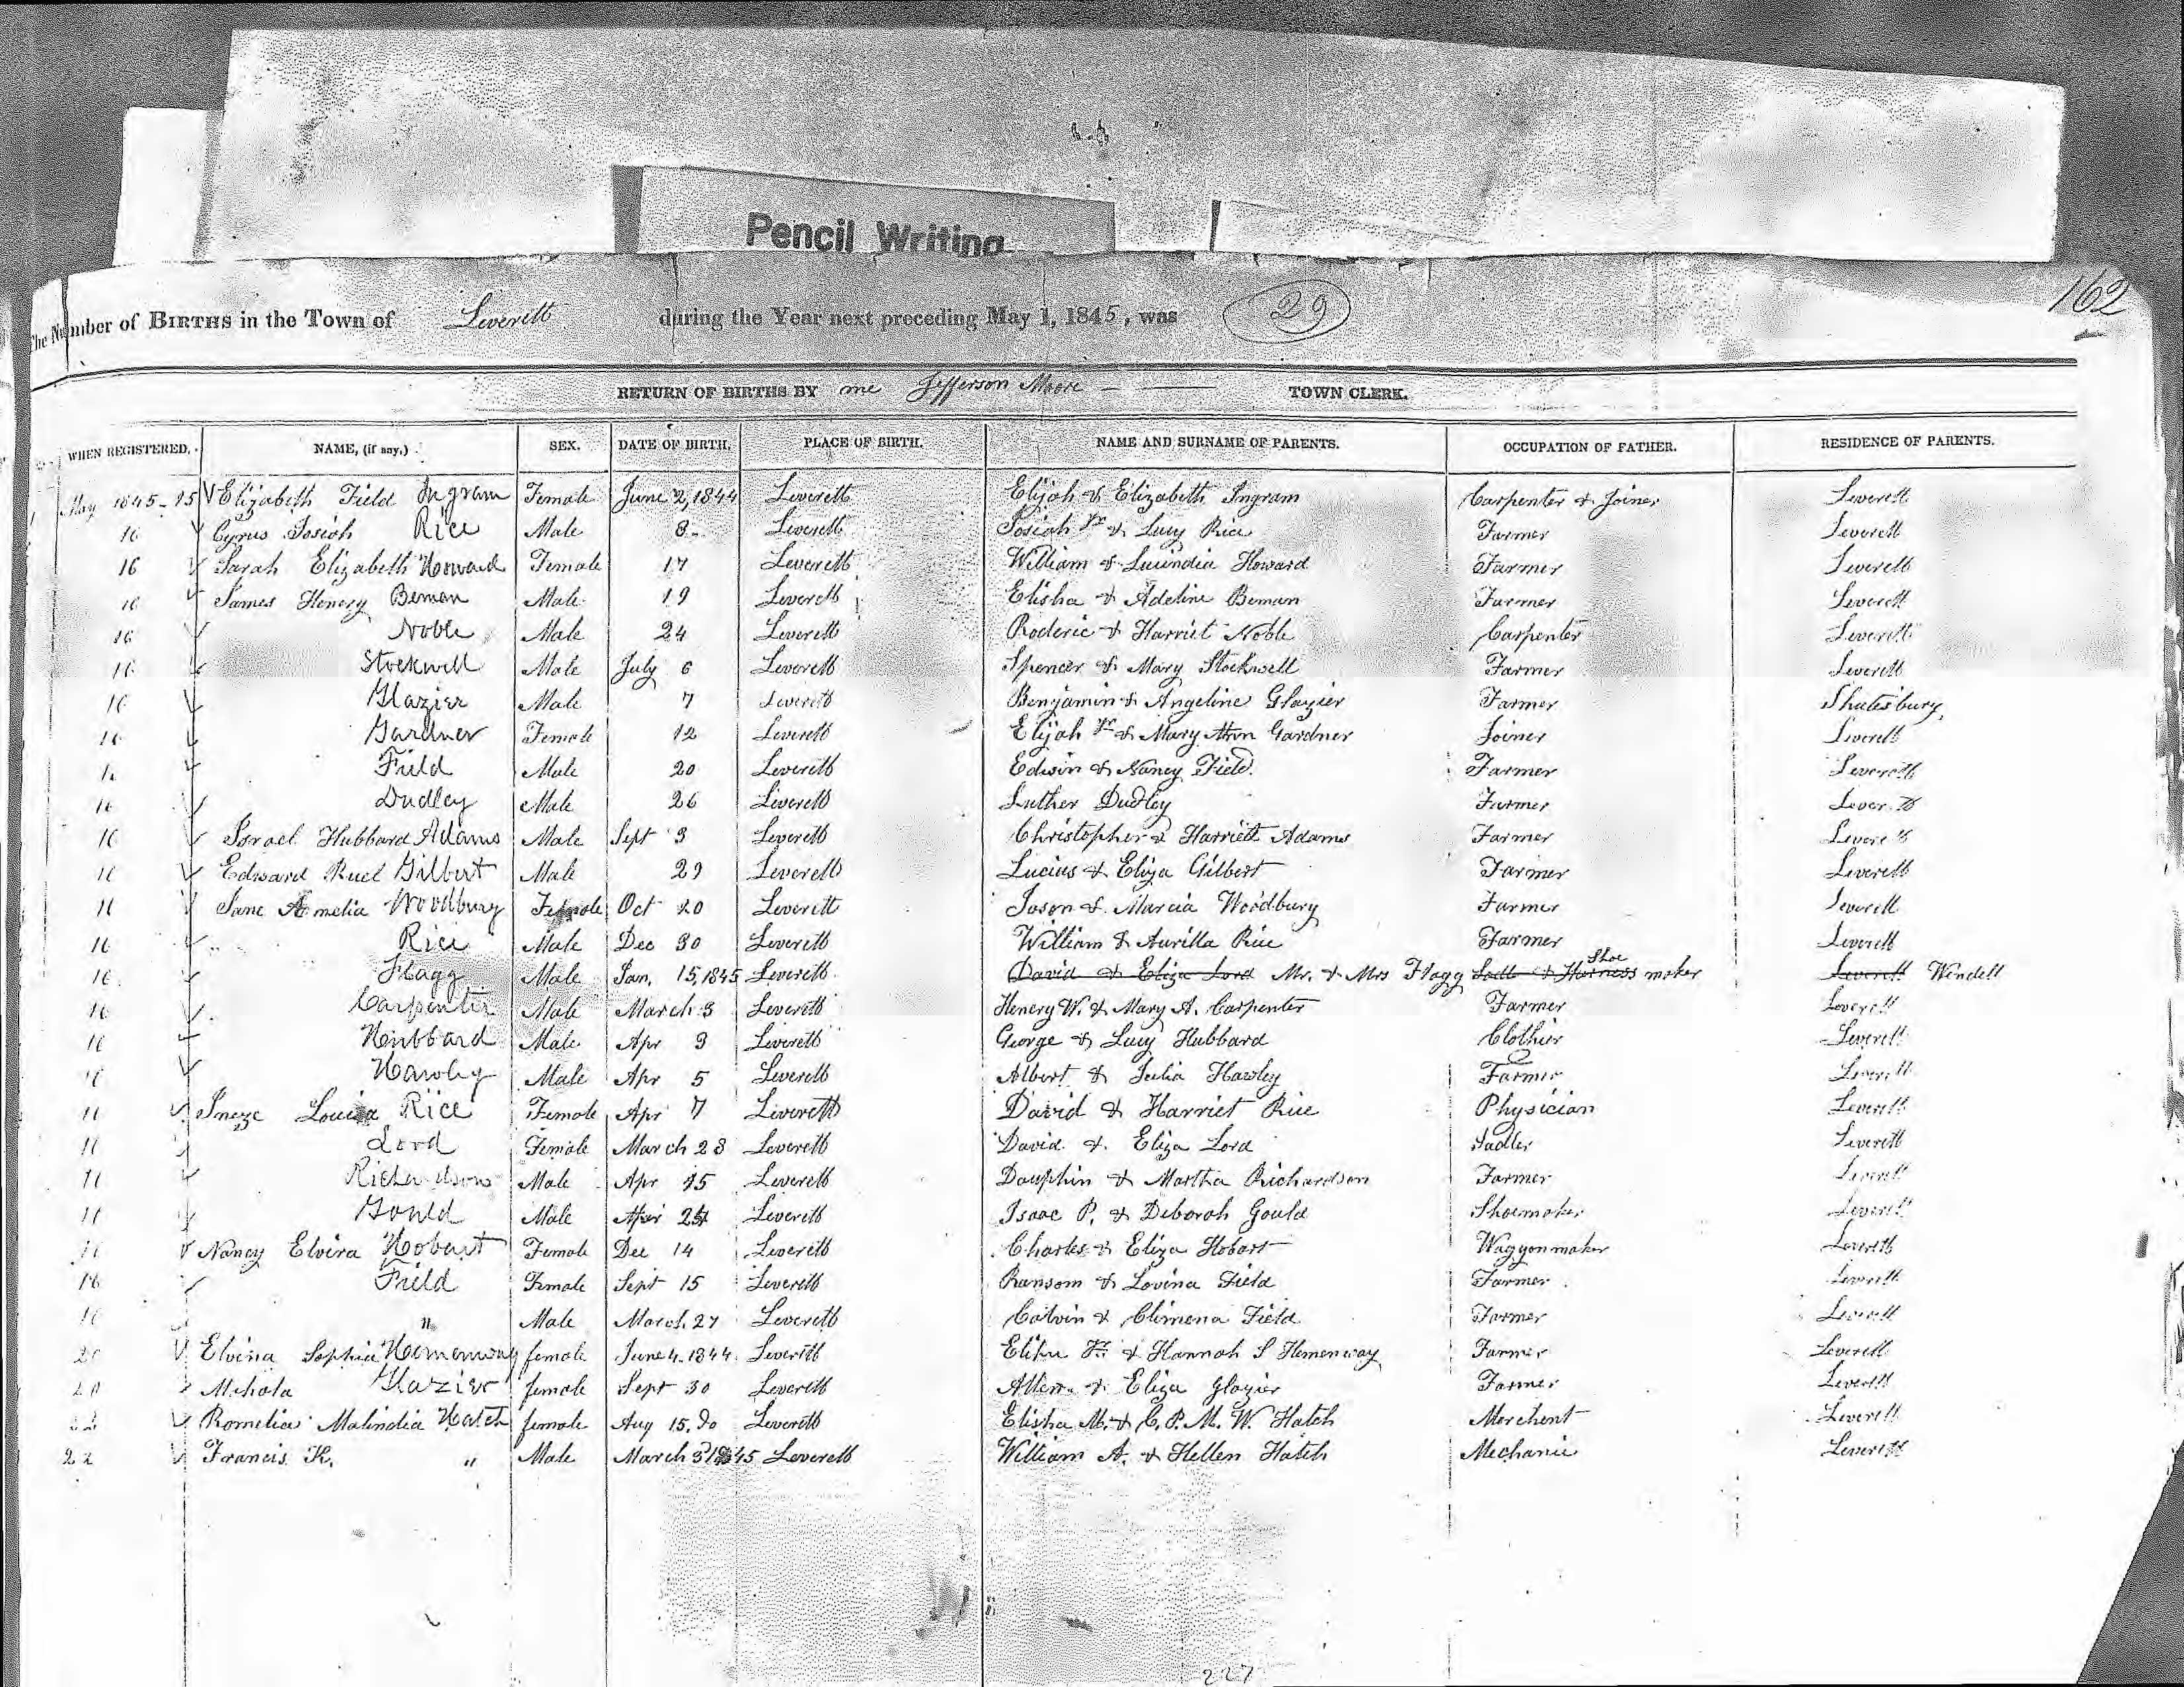 Pencil Writing
162
The Number of BIRTHS in the Town of Leverett during the Year next preceding May 1, 1845, was 29
RETURN OF BIRTHS BY me Jefferson Moore — — TOWN CLERK.
WHEN REGISTERED. NAME, (if any.) SEX. DATE OF BIRTH. PLACE OF BIRTH. NAME AND SURNAME OF PARENTS. OCCUPATION OF FATHER. RESIDENCE OF PARENTS.
May 1845-15 Elizabeth Field Ingram Female June 2, 1844 Leverett Elijah & Elizabeth Ingram Carpenter & Joiner Leverett
16 Cyrus Josiah Rice Male 8 Leverett Josiah Jr & Lucy Rice Farmer Leverett
16 Sarah Elizabeth Howard Female 17 Leverett William & Luindia Howard Farmer Leverett
16 James Henery Beman Male 19 Leverett Elisha & Adeline Beman Farmer Leverett
16 Noble Male 24 Leverett Roderic & Harriet Noble Carpenter Leverett
16 Stockwell Male July 6 Leverett Spencer & Mary Stockwell Farmer Leverett
16 Glazier Male 7 Leverett Benjamin & Angeline Glazier Farmer Shutesbury
16 Gardner Female 12 Leverett Elijah Jr & Mary Ann Gardner Joiner Leverett
16 Field Male 20 Leverett Edwin & Nancy Field Farmer Leverett
16 Dudley Male 26 Leverett Luther Dudley Farmer Leverett
16 Israel Hubbard Adams Male Sept 3 Leverett Christopher & Harriett Adams Farmer Leverett
16 Edward Ruel Gilbert Male 29 Leverett Lucius & Eliza Gilbert Farmer Leverett
16 Jane Amelia Woodbury Female Oct 20 Leverett Jason & Marcia Woodbury Farmer Leverett
16 Rice Male Dec 30 Leverett William & Aurilla Rice Farmer Leverett
16 Flagg Male Jan. 15, 1845 Leverett David & Eliza Lord Mr. & Mrs Flagg Sadle & Harness Shoe maker Leverett Windell
16 Carpenter Male March 3 Leverett Henery W. & Mary A. Carpenter Farmer Leverett
16 Hubbard Male Apr 3 Leverett George & Lucy Hubbard Clothier Leverett
16 Hawley Male Apr 5 Leverett Albert & Julia Hawley Farmer Leverett
16 Ineze Louisa Rice Female Apr 7 Leverett David & Harriet Rice Physician Leverett
16 Lord Female March 28 Leverett David & Eliza Lord Sadler Leverett
16 Richardson Male Apr 15 Leverett Dauphin & Martha Richardson Farmer Leverett
16 Gould Male Apr Leverett Isaac P. & Deborah Gould Shoemaker Leverett
16 Nancy Elvira Hobart Female Dec 14 Leverett Charles & Eliza Hobart Waggonmaker Leverett
16 Field Female Sept 15 Leverett Ransom & Lovina Field Farmer Leverett
16 " Male March 27 Leverett Calvin & Climena Field Farmer Leverett
20 Elvina Sophia Hemenway female June 4. 1844 Leverett Elihu & Hannah S Hemenway Farmer Leverett
20 Mehala Glazier female Sept 30 Leverett Allen & Eliza Glazier Farmer Leverett
22 Romelia Malindia Hatch female Aug 15, Leverett Elisha M. & C. P. M. W. Hatch Merchent Leverett
22 Francis K. " Male March 3 1845 Leverett William A. & Hellen Hatch Mechanic Leverett
227